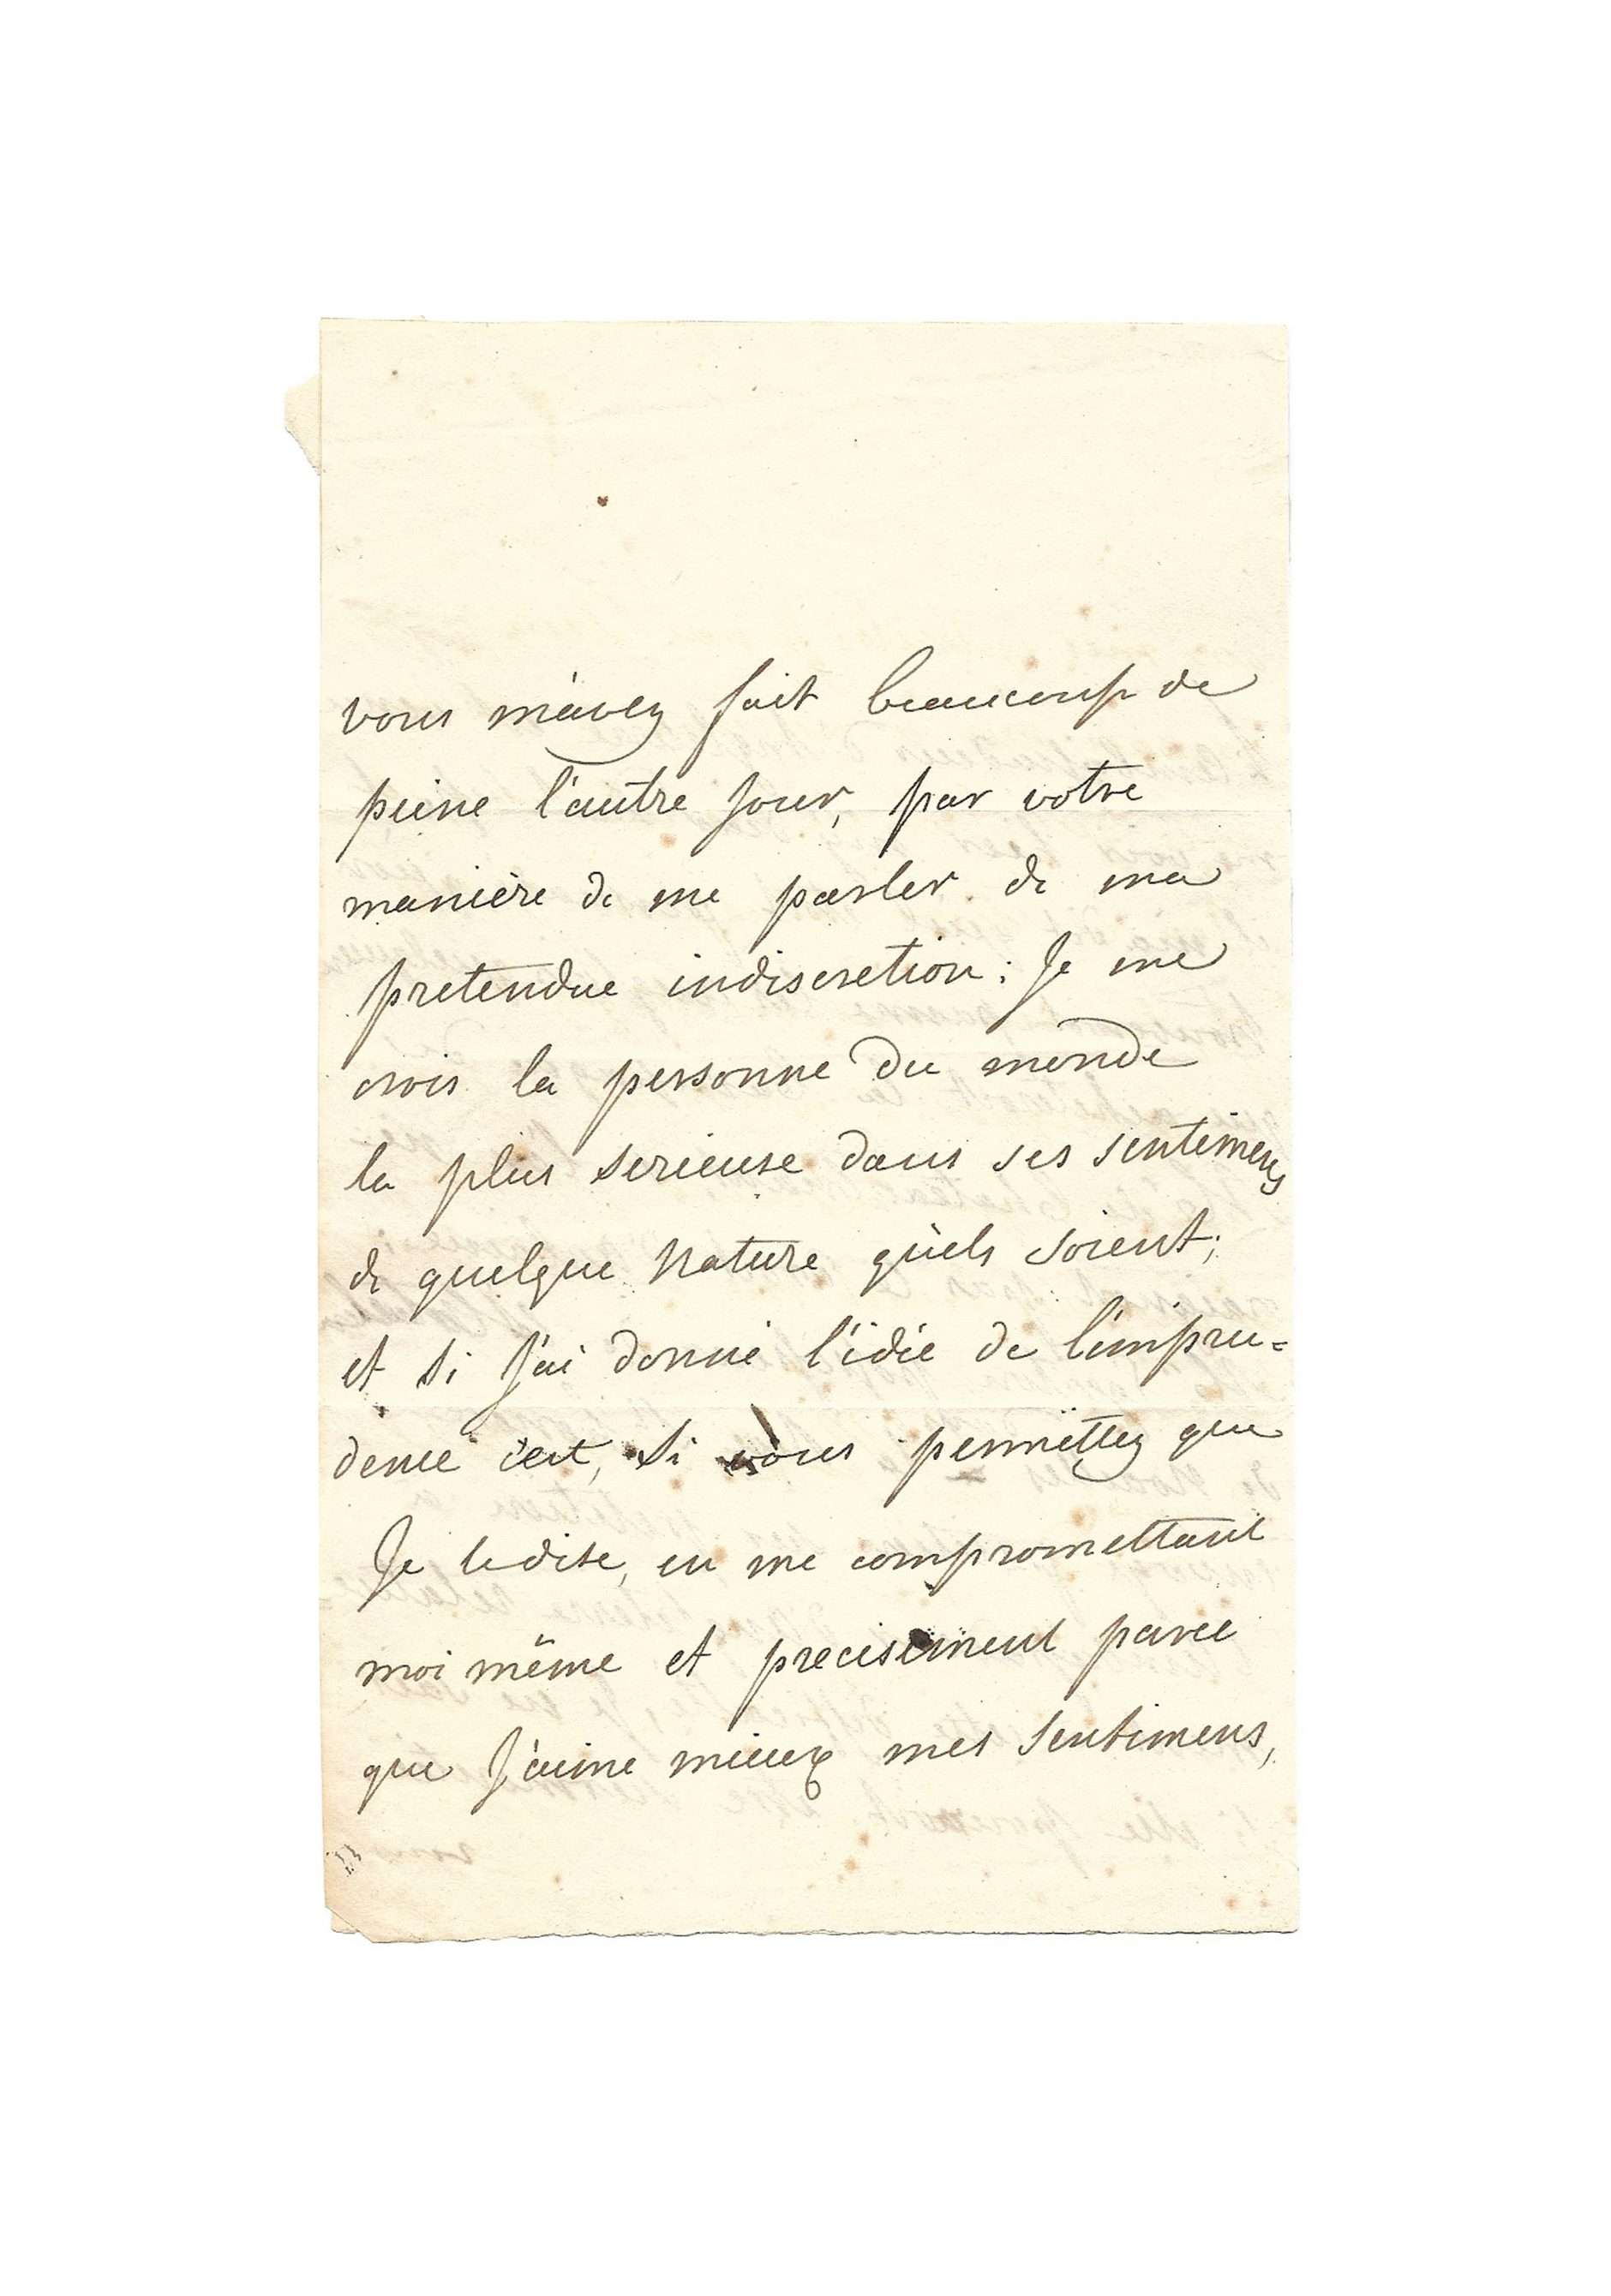 vous m'avez fait beaucoup de
peine l'autre jour, par votre
manière de me parler de ma
pretendue indiscretion : Je me
crois la personne du monde
la plus serieuse dans ses sentimens
de quelque nature qu'els soient ;
et si j'ai donné l'idée de l'impru=
dence c'est, si vous permettez que
Je le dise, en me compromettant
moi même et precisement parce
que J'aime mieux mes sentimens,